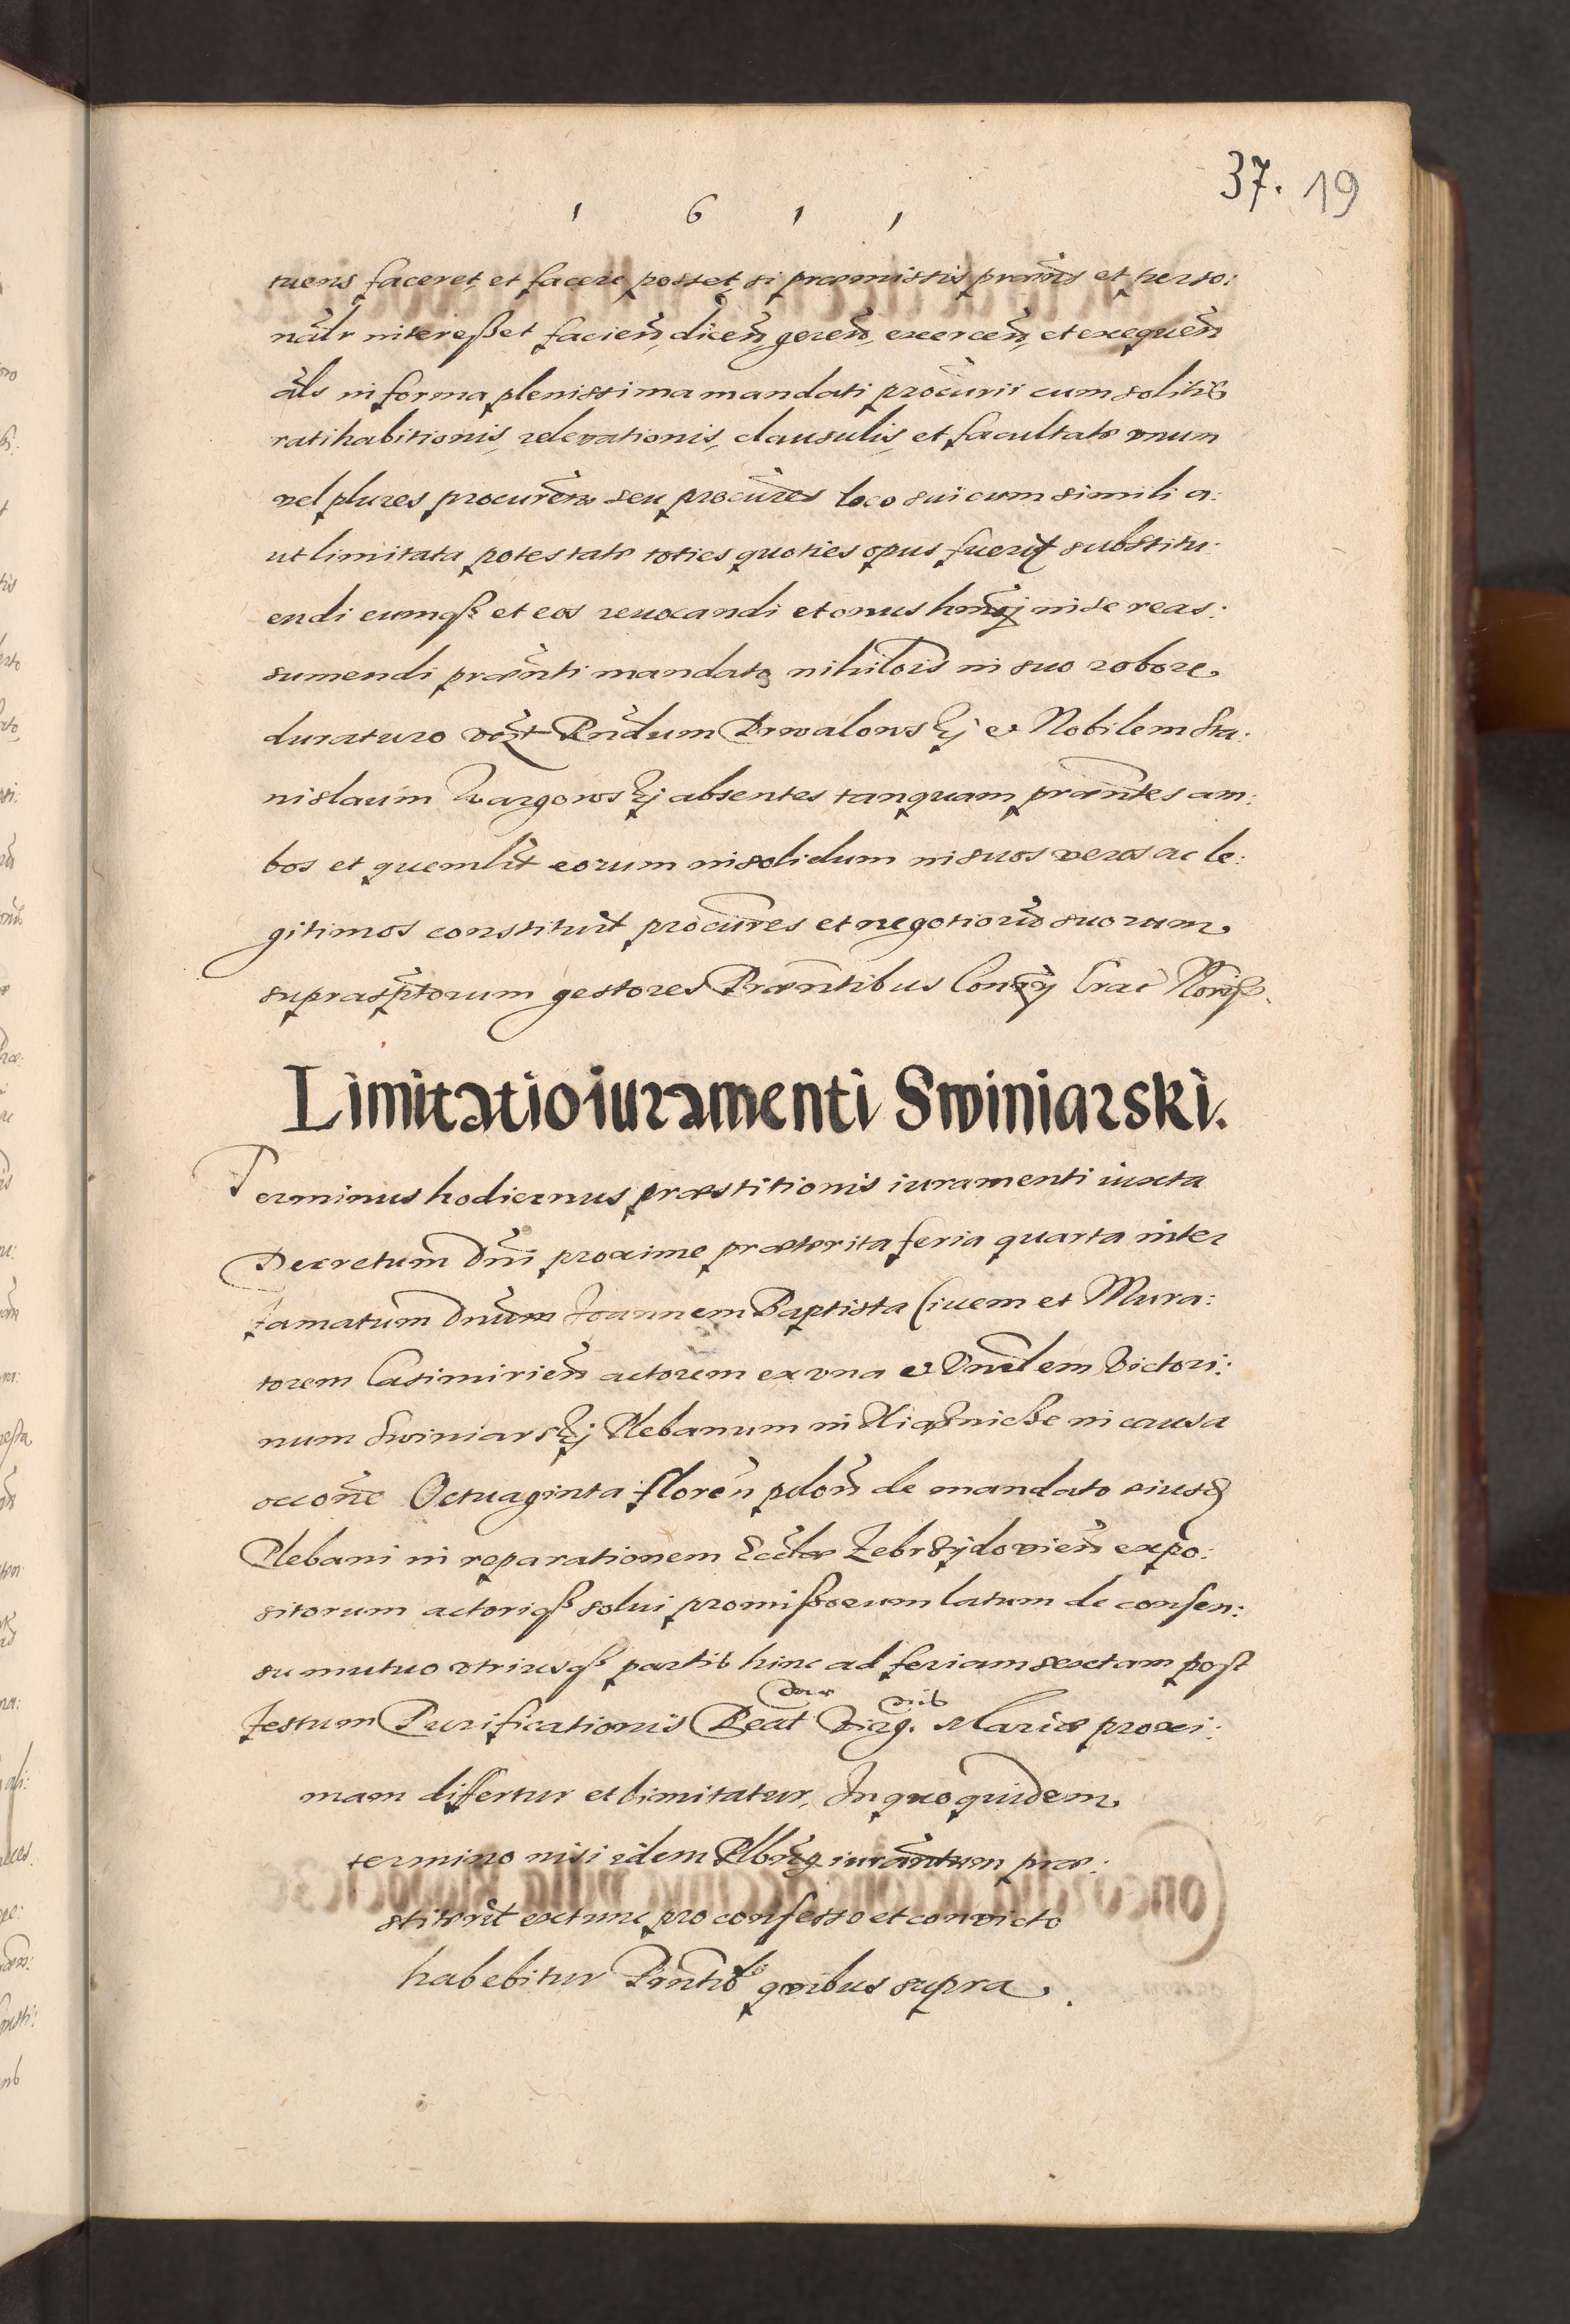 37. 19
1 6 1 1
tuens faceret, et facere posset, si præmissis præns et perso:
nalr interesset facien, dicen, geren, exercen, et exequen
als in forma plenissima mandati procurii cum solitis
ratihabitionis, relevationis, clausulis, et facultate unum
vel plures procurem seu procures loco sui cum simili a:
ut limitata potestate toties quoties opus fuerit substitu:
endi eumqß et eos revocandi et onus hmoj in se reas:
sumendi prænti mandato nihilois in suo robore
duraturo Rndum Drwalowskj et Nobilem Sta:
nislaum Wargowskj absentes tanquam præntes am:
bos et quemlit eorum in solidum in suos veros ac le:
gitimos constituit procures et negotiorum suorum
suprasptorum gestores Præntibus Crac
Limitatio iuramenti Swiniarski.
Terminus hodiernus præstitionis iuramenti iuxta
Decretum Dni proxime præterita feria quarta inter
famatum Dnum Joannem Baptista Civem et Mura:
torem Casimirien actorem ex una et Vnlem Victori:
num Swiniarskj Plebanum in in causa
occone Octuaginta floren polon de mandato eiusd
Plebani in reparationem Eccle Zebrzydovien expo:
sitorum actoriqß solvi promissorum latum de consen:
su mutuo utriusqß partis hinc ad feriam sextam post
festum Purificationis Beat Virg. Mariæ proxi:
mam differtur et limitatur, In quo quidem
termino nisi idem Plbng iurantum præ:
stiterit extunc pro confesso et convicto
habebitur Prntib quibus supra.